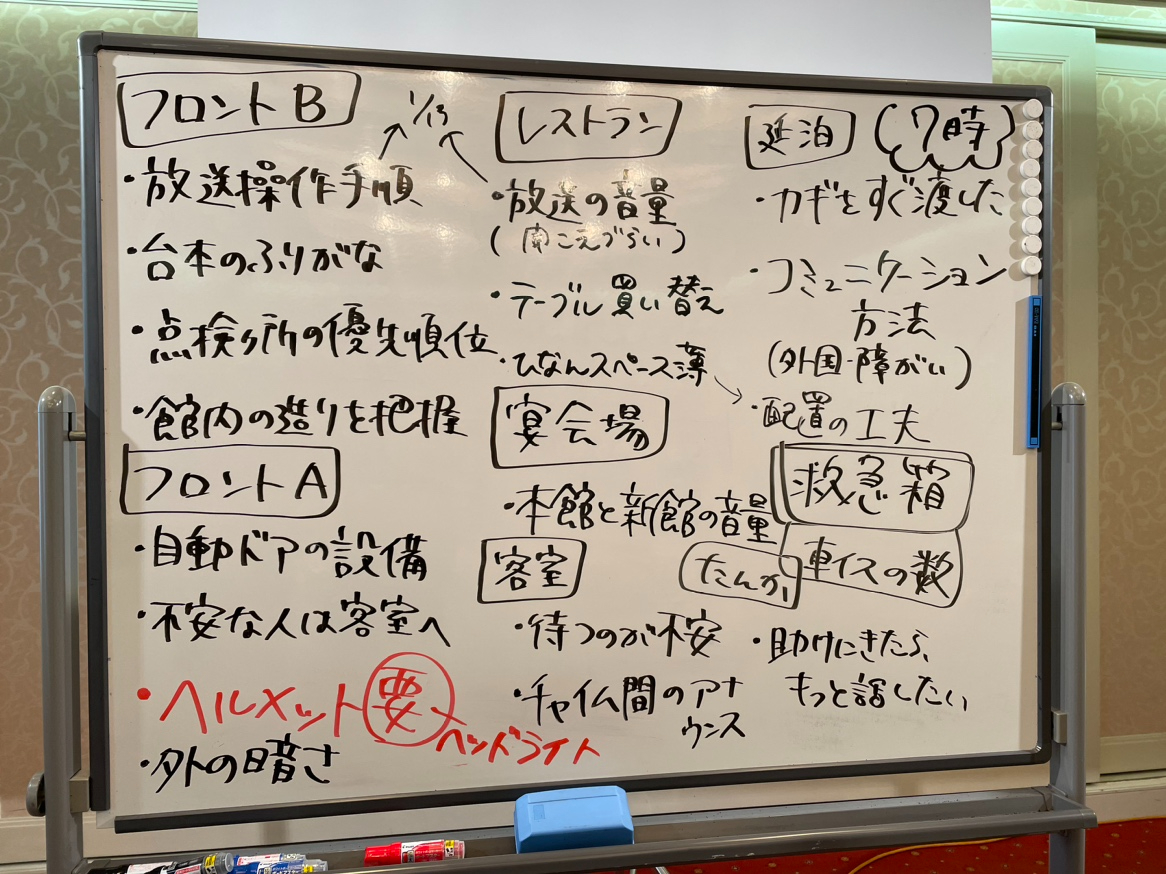 フロントB
1/13
・放送操作手順
・台本のふりがな
・点検ヶ所の優先順位
・館内の造りを把握
フロントA
・自動ドアの設備
・不安な人は客室へ
・ヘルメット要
ヘッドライト
・外の暗さ
レストラン
・放送の音量
(聞こえづらい)
・テーブル買い替え
・ひなんスペース薄
宴会場
・本館と新館の音量
客室
・待つのが不安
・チャイム間のアナ
ウンス
延泊
(7時)
・カギをすぐ渡した
・コミュニケーション
方法
(外国・障がい)
・配置の工夫
救急箱
車イスの数
たんか
・助けにきたら、
もっと話したい